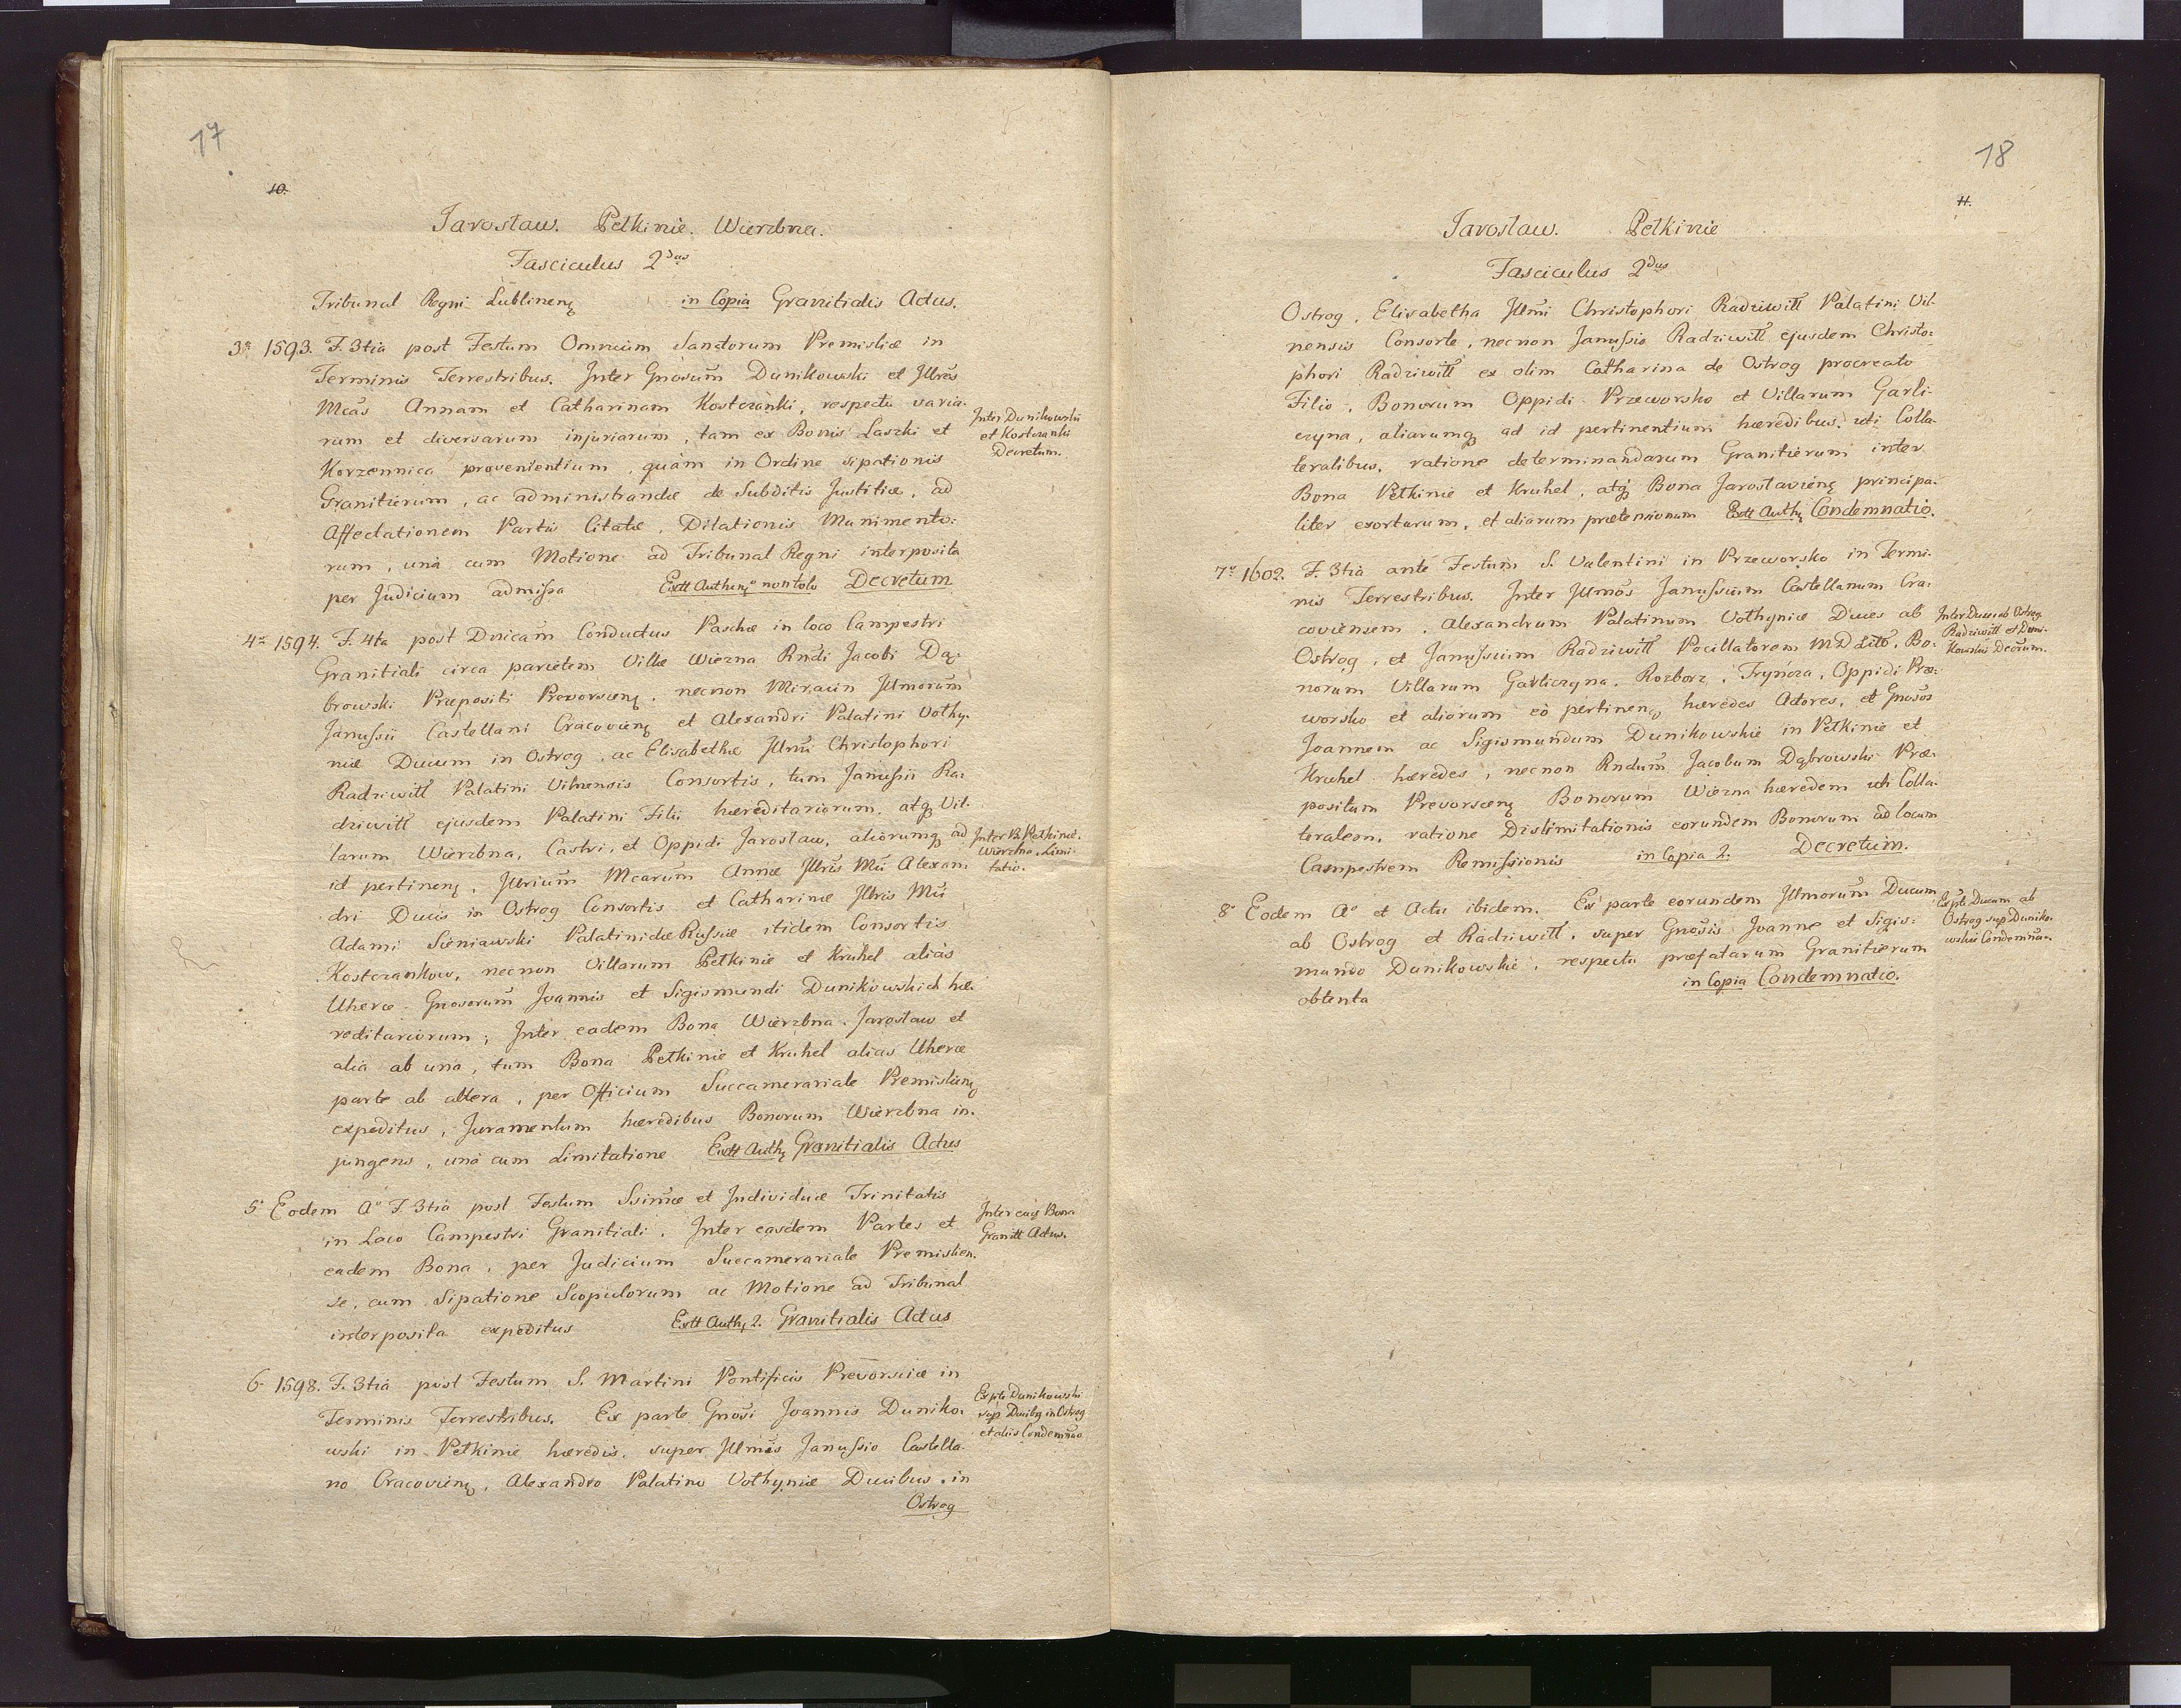 17
10.
Jarosław. Pełkinie. Wierzbna.
Fasciculus 2dus
Tribunal Regni Lublinenꝫ in Copia Granitialis Actus.
3o 1593. F. 3tia post Festum Omnium Sanctorum Premisliæ in
Terminis Terrestribus. Inter Gnosum Dunikowski et Illres
Mcas Annam et Catharinam Kostczanki, respectu varia-
rum et diversarum injuriarum, tam ex Bonis Laszki et
Korzennica provenientium, quàm in Ordine sipationis
Granitierum, ac administrandæ de Subditis Justitiæ, ad
Affectationem Partis Citatæ, Dilationis Munimento:
rum, unà cum Motione ad Tribunal Regni interposita
per Judicium admissa Extt Authenꝫ non tolo Decretum
Inter Dunikowski
et Kostczanki
Decretum.
4o 1594. F. 4ta post Dnicam Conductus Paschæ in loco Campestri
Granitiali circa parietem Villæ Wierzna Rndi Jacobi Dą:
browski Præpositi Prevorscenꝫ, necnon Miraċin Illmorum
Janussii Castellani Cracovienꝫ et Alexandri Palatini Vołhy-
niæ Ducum in Ostrog, ac Elisabethæ Illmi Christophori
Radziwiłł Palatini Vilnensis Consortis, tum Janussii Ra:
dziwiłł ejusdem Palatini Filii hæreditariorum, atqꝫ Vil-
larum Wierzbna, Castri, et Oppidi Jarosław, aliorumqꝫ ad
id pertinenꝫ, Illrium Mcarum Annæ Illris Mci Alexan
dri Ducis in Ostrog Consortis et Catharinæ Illris Mci
Adami Sieniawski Palatinidæ Russiæ itidem Consortis
Kostczankow, necnon Villarum Pełkinie et Kruhel aliàs
Uherce Gnosorum Joannis et Sigismundi Dunikowskich hæ-
reditariorum; Inter eadem Bona Wierzbna. Jarosław et
alia ab unà, tum Bona Pełkinie et Kruhel alias Uherce
parte ab altera, per Officium Succamerariale Premislienꝫ
expeditus, Juramentum hæredibus Bonorum Wierzbna in-
jungens, unà cum Limitatione Extt Authꝫ Granitialis Actus
Inter B. Pełkinie.
Wierzbna. Limi-
tatio.
5o Eodem Ao F. 3tia post Festum Ssimæ et Individuæ Trinitatis
in Loco Campestri Granitiali. Inter easdem Partes et
eadem Bona, per Judicium Succamerariale Premislien-
se, cum Sipatione Scopulorum ac Motione ad Tribunal
interposita expeditus Extt Authꝫ 2. Granitialis Actus
Inter eaqꝫ Bona
Granitt Actus.
6o 1598. F. 3tia post Festum S. Martini Pontificis Prevorsciæ in
Terminis Terrestribus. Ex parte Gnosi Joannis Duniko-
wski in Pełkinie hæredis, super Illmis Janussio Castella-
no Cracovienꝫ, Alexandro Palatino Vołhyniæ Ducibus in
Ostrog
Ex pte Dunikowski
sup Ducibꝫ in Ostrog
et aliis Condemnao
18
11.
Jarosław. Pełkinie
Fasciculus 2dus
Ostrog, Elisabetha Illmi Christophori Radziwiłł Palatini Vil-
nensis Consorte, necnon Janussio Radziwiłł ejusdem Christo:
phori Radziwiłł ex olim Catharina de Ostrog procreato
Filio, Bonorum Oppidi Przeworsko et Villarum Garli-
czyna, aliarumqꝫ ad id pertinentium hæredibus, uti Colla-
teralibus, ratione determinandarum Granitierum inter
Bona Pełkinie et Kruhel, atqꝫ Bona Jarosłavienꝫ principa-
liter exortarum, et aliarum prætensionum Extt Authꝫ Condemnatio.
7o 1602. F. 3tia ante Festum S. Valentini in Przeworsko in Termi-
nis Terrestribus. Inter Illmos Janussium Castellanum Cra:
coviensem, Alexandrum Palatinum Vołhyniæ Duces ab
Ostrog, et Janussium Radziwiłł Pocillatorem M D Litt, Bo-
norum Villarum Garliczyna. Rozborz, Tryńcza, Oppidi Prze:
worsko et aliorum eò pertinenꝫ hæredes Actores, et Gnosos
Joannem ac Sigismundum Dunikowskie in Pełkinie et
Kruhel hæredes, necnon Rndum Jacobum Dąbrowski Præ-
positum Prevorscenꝫ Bonorum Wierzna hæredem uti Colla-
teralem, ratione Dislimitationis eorundem Bonorum ad locum
Campestrem Remissionis in Copia 2. Decretum.
Inter Duces ab Ostrog
Radziwiłł et Duni-
kowskie Decrum.
8o Eodem Ao et Actu ibidem. Ex parte eorundem Illmorum Ducum
ab Ostrog et Radziwiłł, super Gnosis Joanne et Sigis:
mundo Dunikowskie, respectu præfatarum Granitierum
obtenta in Copia Condemnatio.
Ex pte Ducum ab
Ostrog sup Duniko-
wskie Condemnao.